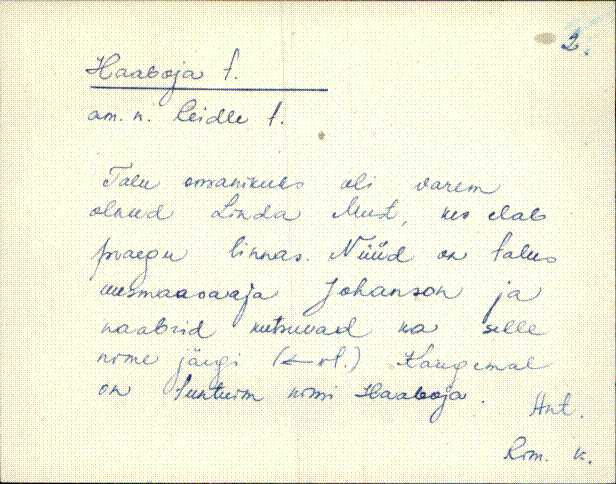 2.
Haaboja t.
am. n. Leidle t.
Talu omanikuks oli varem
olnud Linda Must, kes elab
praegu linnas. Nüüd on talus
uusmaasaaja Johanson ja
naabrid kutsuvad ka selle
nime järgi (← vt.) Kaugemal
on tuntuim nimi Haaboja.
Ant.
Rom. k.